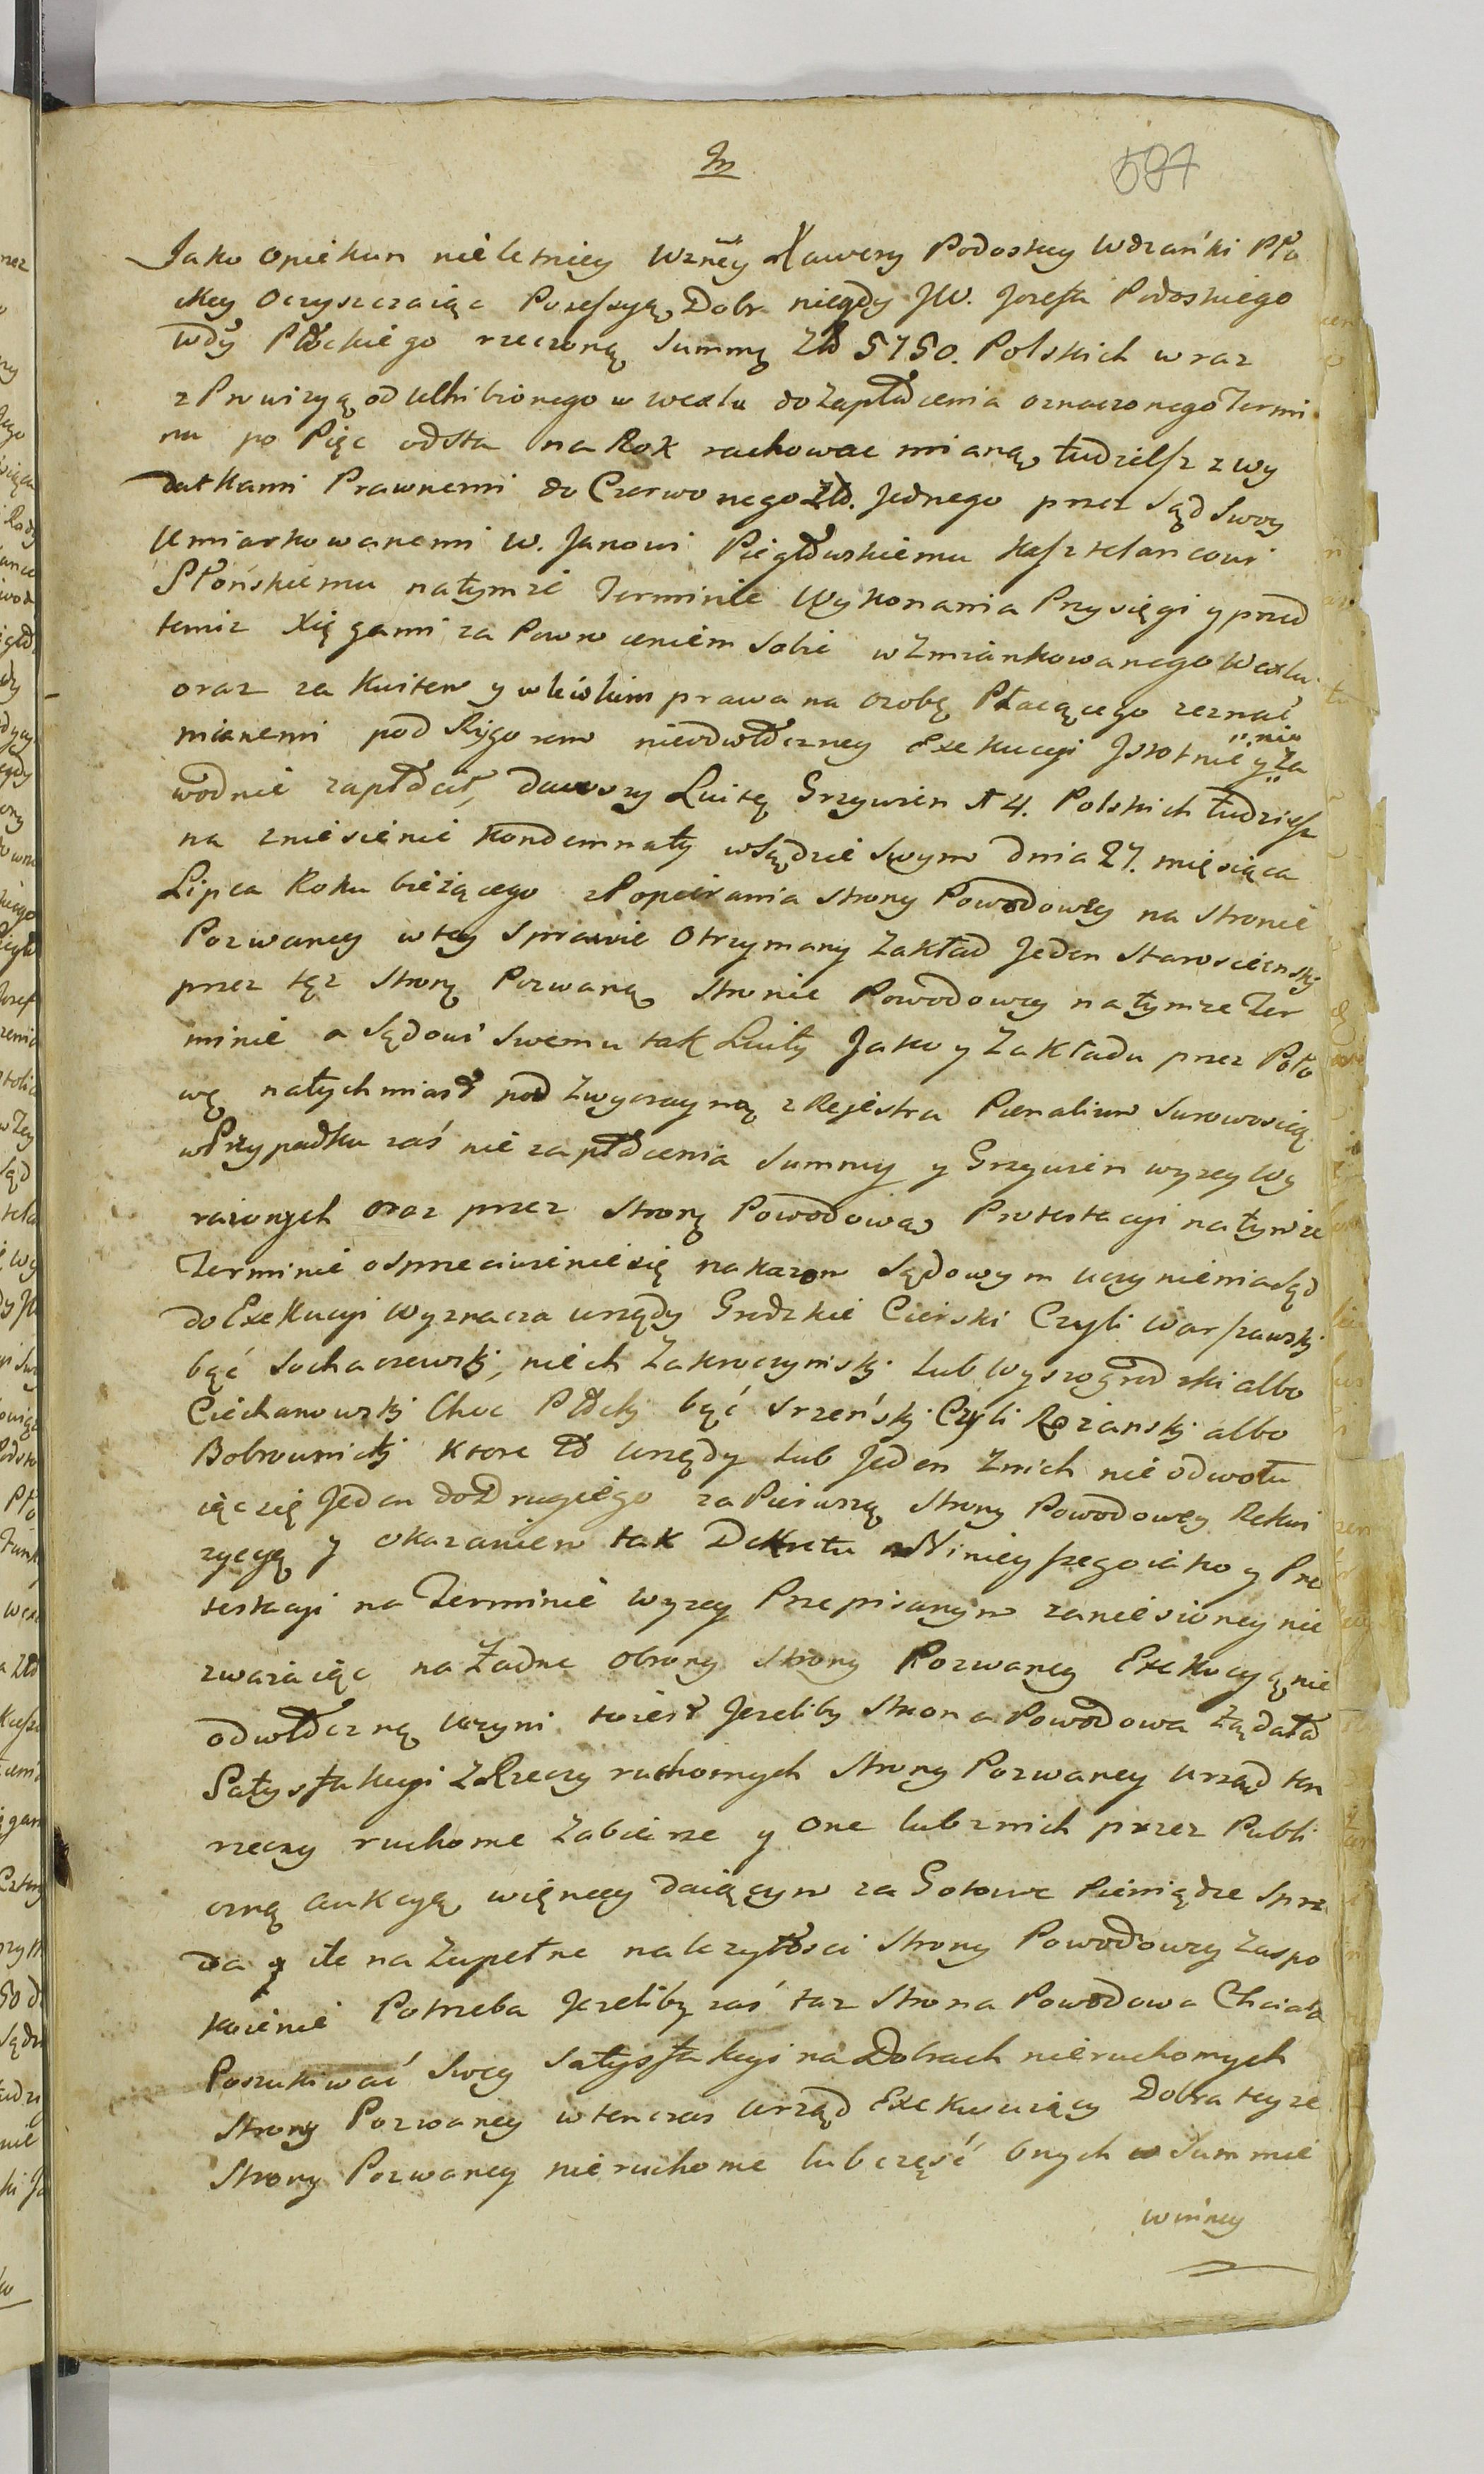 597
Jako Opiekun nieletniey Wzney Xawery Podoskiey Wdzanki Pło
ckiey Oczyszczaiąc Possessyą Dobr niegdy JW. Jozefa Podoskiego
Wdy Płockiego rzeczoną Summę Zło 5750. Polskich wraz
z Prowizyą od uchibionego w wexlu do Zapłacenia oznaczonego Termi
nu po Pięc od Sta na Rok rachowac mianą, tudzielsz z wy
datkami Prawnemi do Czerwonego Zło. Jednego przez Sąd Swoy
Umiarkowanemi W. Janowi Piegłowskiemu Kasztelancowi
Słońskiemu natymze Terminie Wykonania Przysięgi y przed
temiz Xięgami za Powroceniem Sobie wzmiankowanego Wexlu
oraz za Kwitem y wlewkim prawa na osobę Płacącego zeznać
mianemi pod Rygorem nieodwłoczney Exekucyi Jstotnie y nie
Za
wodnie zapłacił, dawszy Luitę Grzywien N 4. Polskich tudziesz
na zniesienie Kondemnaty w Sądzie Swym dnia 27. miesiąca
Lipca Roku bieżącego z Popierania Strony Powodowey na Stronie
Pozwaney w tey Sprawie Otrzymany Zakład Jeden Staroscienski
przez tęz Stronę Pozwaną Stronie Powodowey na tymze Ter
minie a Sądowi Swemu tak Luity Jako y Zakładu przez Poło
wę natychmiast pod zwyczayną z Rejestra Paenalium Surowoscią
w Przypadku zaś nie zapłacenia Summy y Grzywien wyzey Wy
rażonych oraz przez Stronę Powodową Protestacyi na tymże
Terminie o Sprzeciwienie się nakazom Sądowym uczynienia Sąd
do Exekucyi Wyznacza urzędy Grodzkie Cierski Czyli Warszawski
bąć Sochaczewski, niech Zakroczymski Lub Wyszogrodzki albo
Ciechanowski Choc Płocki bąć Srzeński Czyli Rożanski albo
Bobrownicki Ktore to Urzędy Lub Jeden Znich nie odwołu
iąc się Jeden do Drugiego za Pierwszą Strony Powodowey Rekwi
zycyą y okazaniem tak Dekretu Ninieyszego iako y Pro
testacyi na Terminie wyzey Przepisanym zaniesioney nie
zwaraiąc na Żadne obrony Strony Pozwaney Exekucyą nie
odwłoczną uczyni toiest Jezeliby Strona Powodowa Żądała
Satysfakcyi Z Rzeczy ruchomych Strony Pozwaney Urząd ten
rzeczy ruchome Zabierze y One lub z nich przez Publi
czną aukcyą więcey daiącym za Gotowe Pieniądze Sprze
da ile na Zupełne należytosci Strony Powodowey Zaspo
koienie Potrzeba Jezeliby zaś taz Strona Powodowa Chciała
Poszukiwać Swey Satysfakcyi na Dobrach nieruchomych
Strony Pozwaney w ten czas Urząd Exekwuiący Dobra teyze
Strony Pozwaney nieruchome lub część Onych w Summie
winney